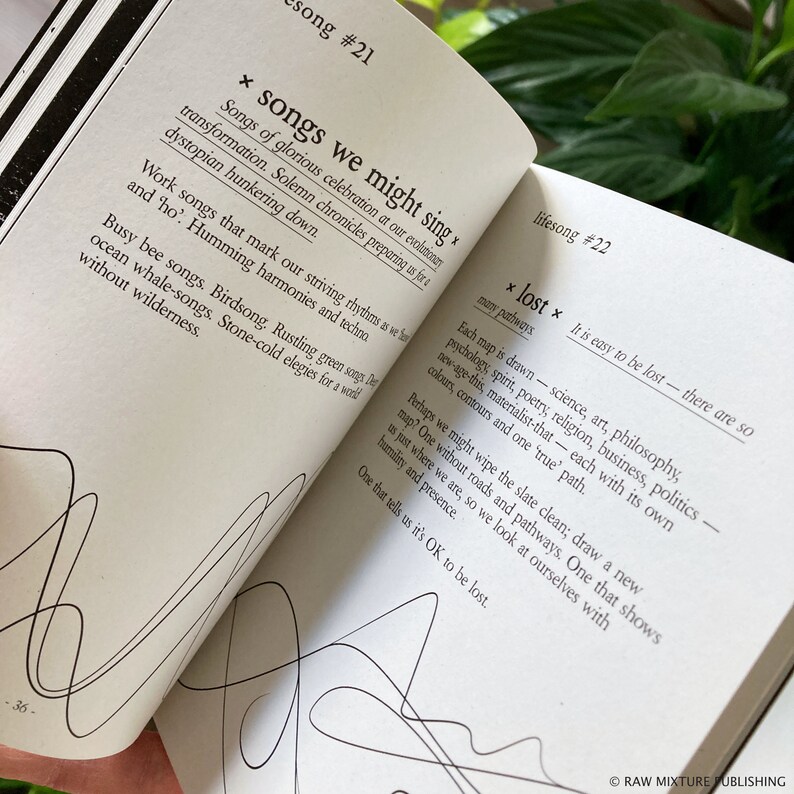 lifesong #21
× songs we might sing ×
Songs of glorious celebration at our evolutionary
transformation. Solemn chronicles preparing us for a
dystopian hunkering down.
Work songs that mark our striving rhythms as we
and ‘ho’. Humming harmonies and techno.
Busy bee songs. Birdsong. Rustling green songs. Deep
ocean whale-songs. Stone-cold elegies for a world
without wilderness.
- 36 -
lifesong #22
× lost × It is easy to be lost — there are so
many pathways.
Each map is drawn — science, art, philosophy,
psychology, spirit, poetry, religion, business, politics —
new-age-this, materialist-that — each with its own
colours, contours and one ‘true’ path.
Perhaps we might wipe the slate clean; draw a new
map? One without roads and pathways. One that shows
us just where we are, so we look at ourselves with
humility and presence.
One that tells us it’s OK to be lost.
© RAW MIXTURE PUBLISHING